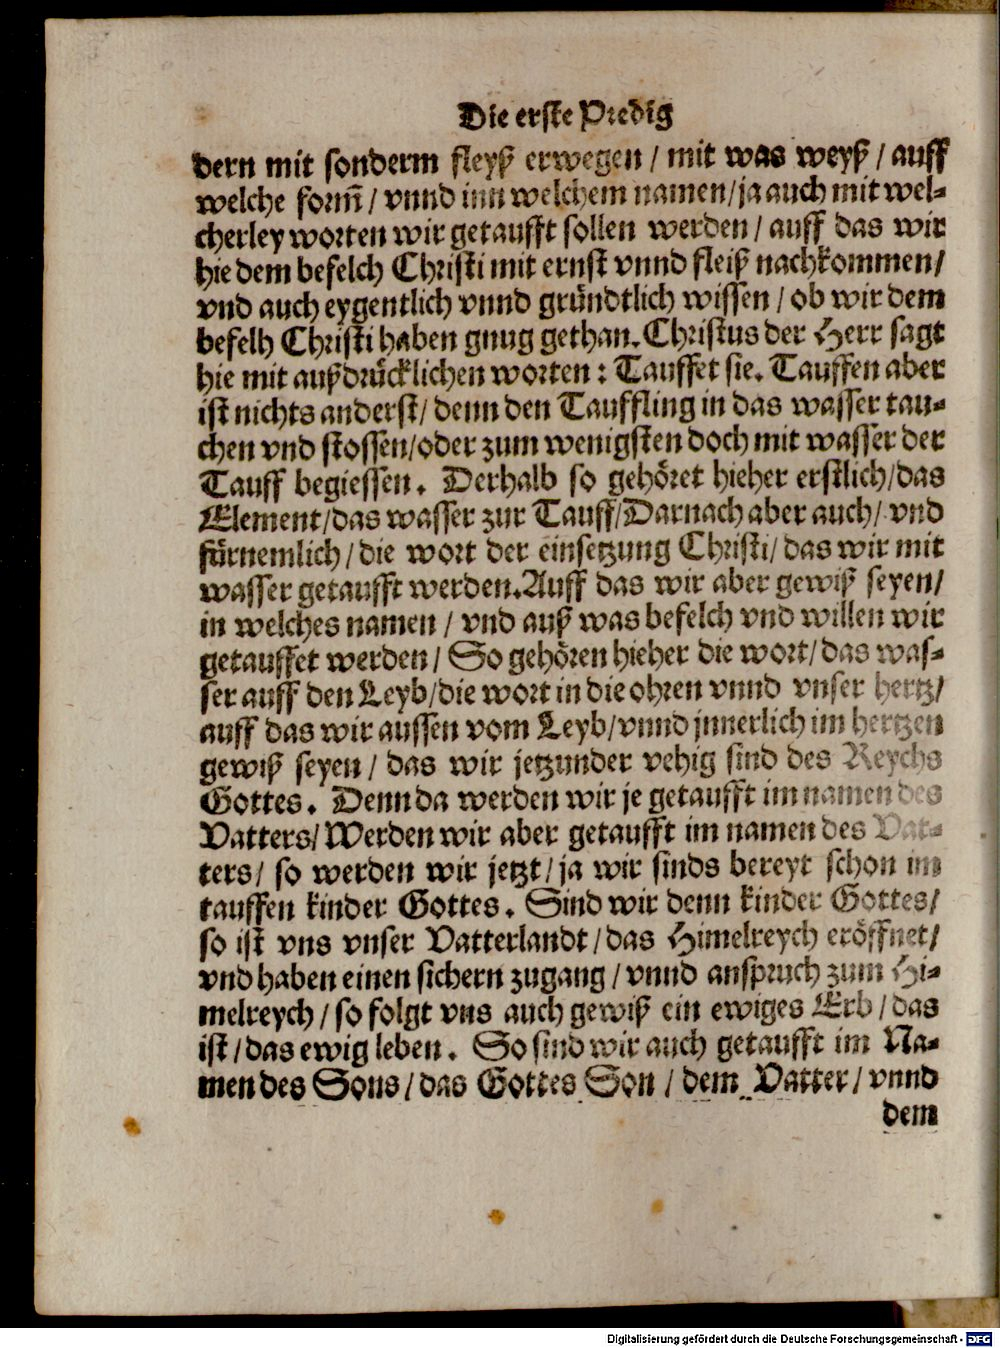 Die erste Predig
dern mit sonderm fleyß erwegen / mit was weyß / auff
welche form̃ / vnnd inn welchem namen / ja auch mit wel-
cherley worten wir getaufft sollen werden / auff das wir
hie dem befelch Christi mit ernst vnnd fleiß nachkommen /
vnd auch eygentlich vnnd gründtlich wissen / ob wir dem
befelh Christi haben gnug gethan. Christus der Herr sagt
hie mit außdrücklichen worten : Tauffet sie. Tauffen aber
ist nichts anderst / denn den Tauffling in das wasser tau-
chen vnd stossen / oder zum wenigsten doch mit wasser der
Tauff begiessen. Derhalb so gehöret hieher erstlich / das
Element / das wasser zur Tauff / Darnach aber auch / vnd
fürnemlich / die wort der einsetzung Christi / das wir mit
wasser getaufft werden. Auff das wir aber gewiß seyen /
in welches namen / vnd auß was befelch vnd willen wir
getauffet werden / So gehören hieher die wort / das was-
ser auff den Leyb / die wort in die ohren vnnd vnser hertz /
auff das wir aussen vom Leyb / vnnd jnnerlich im hertzen
gewiß seyen / das wir jetzunder vehig sind des Reychs
Gottes. Denn da werden wir je getaufft im namen des
Vatters / Werden wir aber getaufft im namen des Vat-
ters / so werden wir jetzt / ja wir sinds bereyt schon im
tauffen kinder Gottes. Sind wir denn kinder Gottes /
so ist vns vnser Vatterlandt / das Himelreych eröffnet /
vnd haben einen sichern zugang / vnnd anspruch zum Hi-
melreych / so folgt vns auch gewiß ein ewiges Erb / das
ist / das ewig leben. So sind wir auch getaufft im Na-
men des Sons / das Gottes Son / dem Vatter / vnnd
dem
Digitalisierung gefördert durch die Deutsche Forschungsgemeinschaft - DFG